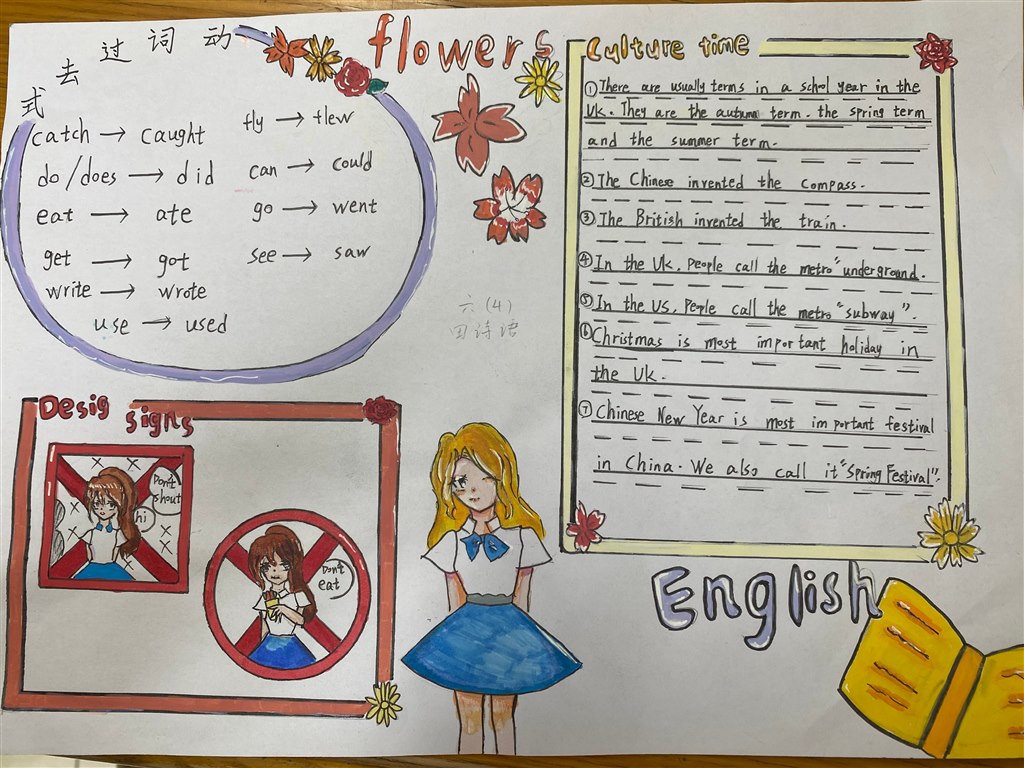 动词过去式
flowers
catch → caught
fly → flew
do/does → did
can → could
eat → ate
go → went
get → got
see → saw
write → wrote
use → used
六(4)
田诗语
Culture time
①There are usually terms in a schol year in the
UK. They are the autumn term. the spring term
and the summer term.
②The Chinese invented the compass.
③The British invented the train.
④In the UK, People call the metro "underground.
⑤In the US, Peple call the metro "subway".
⑥Christmas is most important holiday in
the UK.
⑦Chinese New Year is most important festival
in China. We also call it "Spring Festival".
Desig signs
Don't
shout
hi
Don't
eat
English